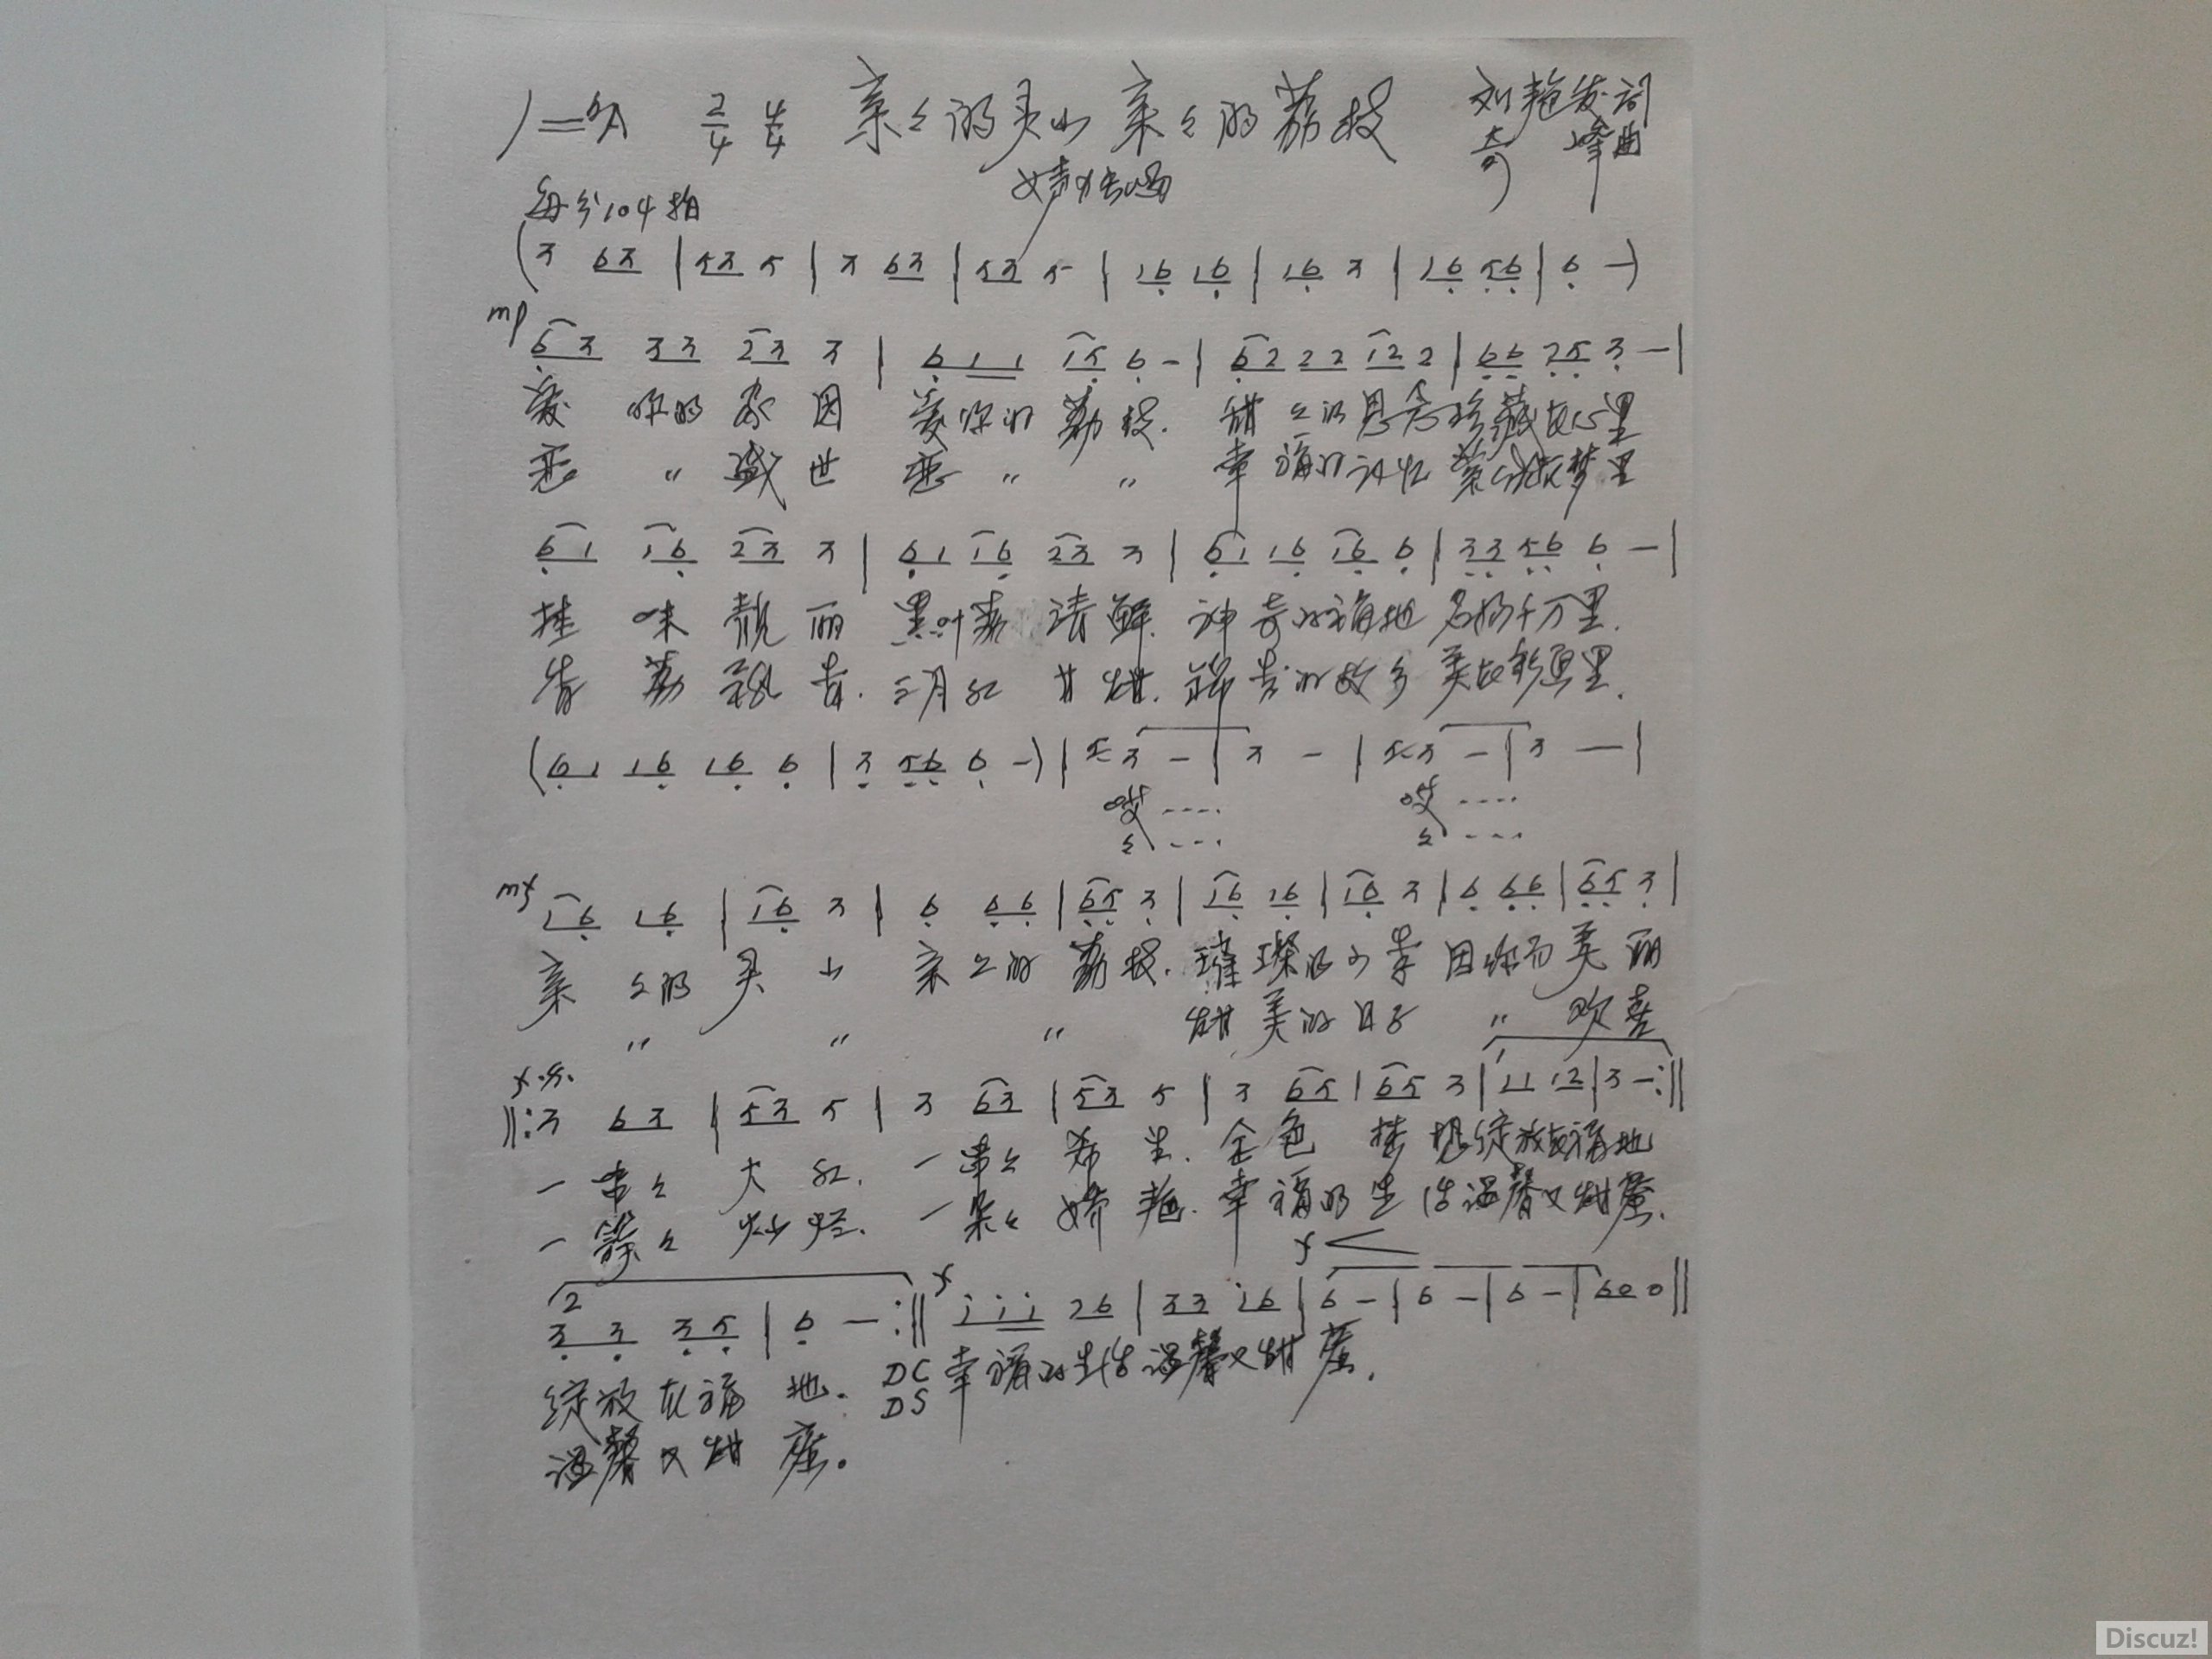 1=♭A 2/4 4/4 亲々的灵山亲々的荔枝 刘艳发词
女声独唱 奇峰曲
每分104拍
(3 63 | 53 5 | 3 63 | 53 5 | 16 16 | 16 3 | 16 56 | 6 — )
mp 63 33 23 3 | 611 15 6 - | 62 22 12 2 | 66 25 3 — |
爱 你的 因 爱你的 荔枝. 甜々的思念珍藏在心里
恋 〃 盛世 恋 〃 〃 幸福的记忆萦绕在梦里
61 16 23 3 | 61 16 23 3 | 61 16 16 6 | 33 56 6 — |
桂味靓丽 黑叶荔清鲜. 神奇的福地 名扬千万里.
香荔飘香. 三月红 甘甜. 的故乡 美在 里.
(61 16 16 6 | 3 56 6 —) | 3 — | 3 — | 3 — | 3 — |
哎 ···· 哎 ····
々 ···· 々 ····
mf 16 16 | 16 3 | 6 66 | 65 3 | 16 16 | 16 3 | 6 66 | 65 3 |
亲々的 灵山 亲々的 荔枝. 璀璨的 因你而美丽
〃 〃 〃 甜美的日子 〃 欢喜
||: 3 63 | 53 5 | 3 63 | 53 5 | 3 65 | 65 3 | 11 12 | 3 — :||
一串々 大红. 一串々 希望. 金色 梦想绽放在福地
一 々 灿烂. 一朵々 娇艳. 幸福的生活温馨又甜蜜.
f
2 33 35 | 6 — :|| f i i i 26 | 33 i6 | 6 — | 6 — | 6 — | 60 0 ||
绽放在福地. DC 幸福的生活温馨又甜蜜.
DS
温馨又甜蜜.
Discuz!